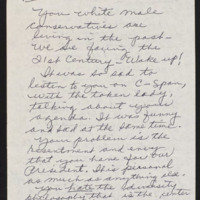 Your white male
conservatives are
living in the past—
We are facing the
21st Century - Wake up!
It was so sad to
listen to you on C-Span,
with the token lady,
talking about your
agenda. It was funny
and sad at the same time.
Your problem is the
resentment and envy
that you have for our
President. It's personal
as much as anything else.
you hate the diversity
that is the